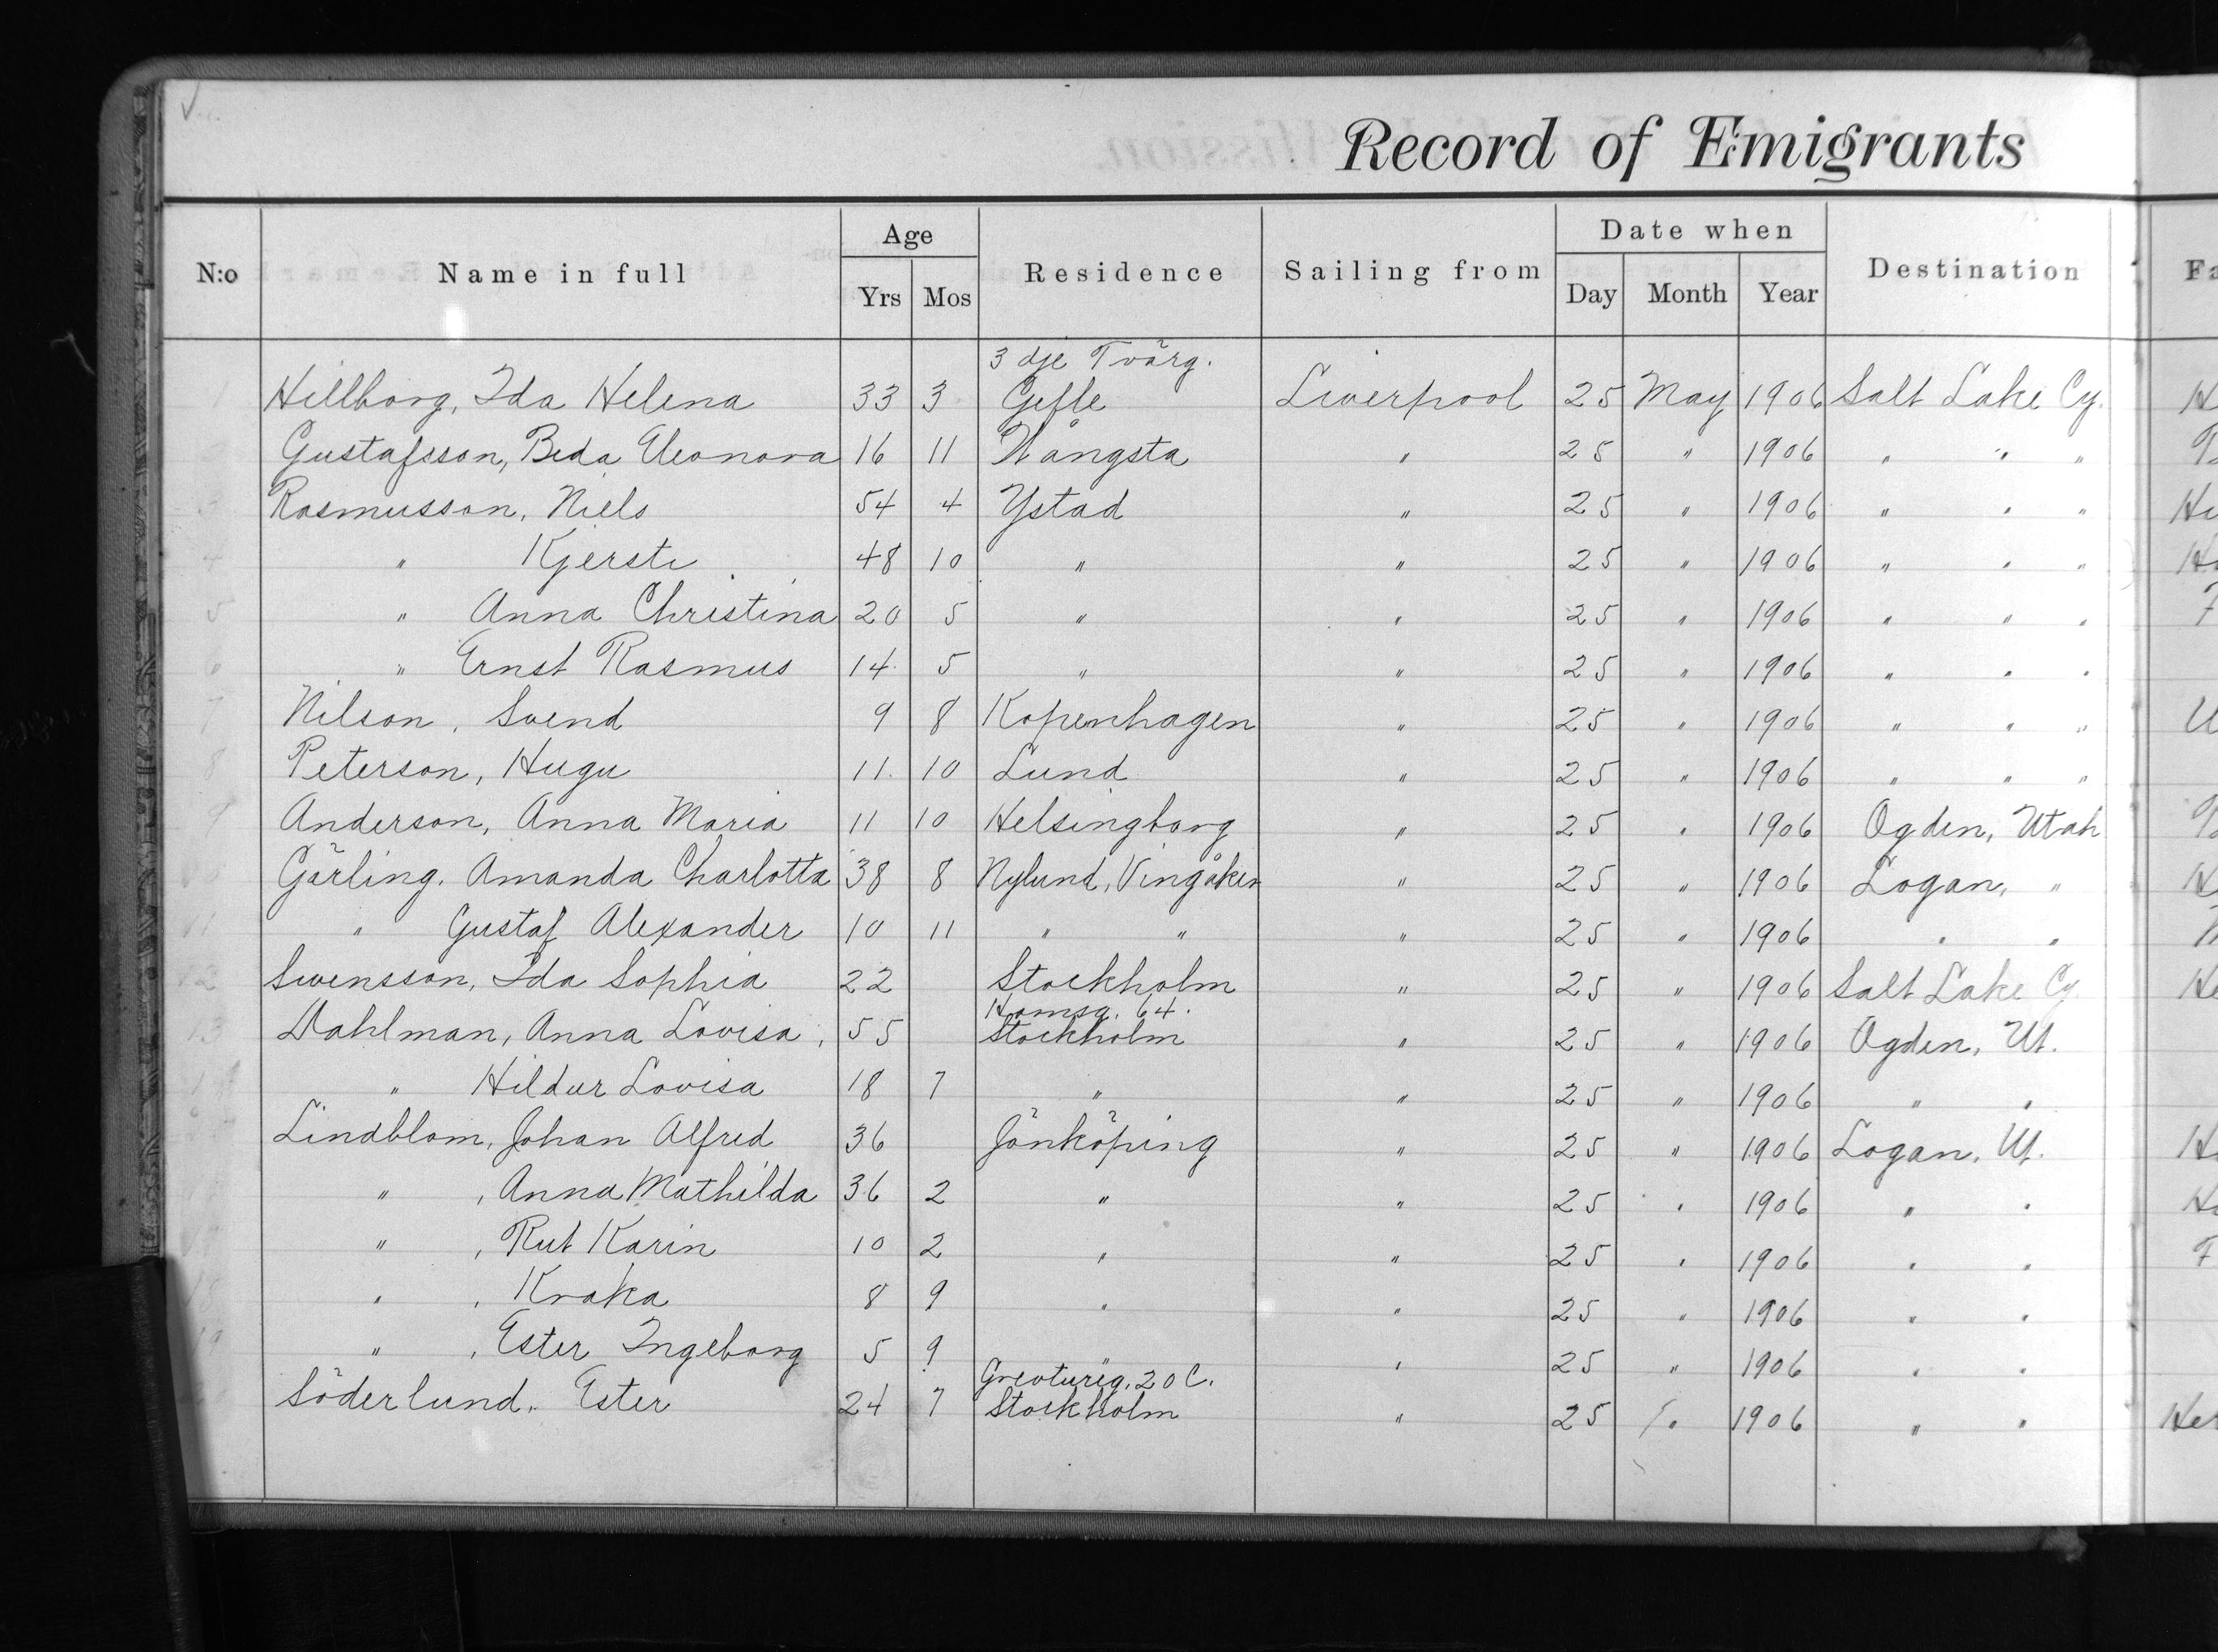 Record of Emigrants
N:o Name in full Age Residence Sailing from Date when Destination
Yrs Mos Day Month Year
3 dje Tvärg.
1 Hillborg, Ida Helena 33 3 Gefle Liverpool 25 May 1906 Salt Lake Cy.
Gustafsson, Beda Eleonora 16 11 Wångsta " 25 " 1906 " " "
3 Rasmusson, Niels 54 4 Ystad " 25 " 1906 " " "
4 " Kjersti 48 10 " " 25 " 1906 " " "
5 " Anna Christina 20 5 " " 25 " 1906 " " "
6 " Ernst Rasmus 14 5 " " 25 " 1906 " " "
7 Nilson, Svend 9 8 Kopenhagen " 25 " 1906 " " "
8 Peterson, Hugu 11 10 Lund " 25 " 1906 " " "
9 Anderson, Anna Maria 11 10 Helsingborg " 25 " 1906 Ogden, Utah
Gärling, Amanda Charlotta 38 8 Nylund, Vingåker " 25 " 1906 Logan, "
11 " Gustaf Alexander 10 11 " " " 25 " 1906 " "
12 Swensson, Ida Sophia 22 Stockholm " 25 " 1906 Salt Lake Cy.
Hornsg. 64.
13 Dahlman, Anna Lovisa, 55 Stockholm " 25 " 1906 Ogden, Ut.
14 " Hildur Lovisa 18 7 " " 25 " 1906 " "
Lindblom, Johan Alfred 36 Jönköping " 25 " 1906 Logan, Ut.
" , Anna Mathilda 36 2 " " 25 " 1906 " "
" , Rut Karin 10 2 " " 25 " 1906 " "
" , Kraka 8 9 " " 25 " 1906 " "
19 " , Ester Ingeborg 5 9 " " 25 " 1906 " "
20 C.
Söderlund, Ester 24 7 Stockholm " 25 " 1906 " "